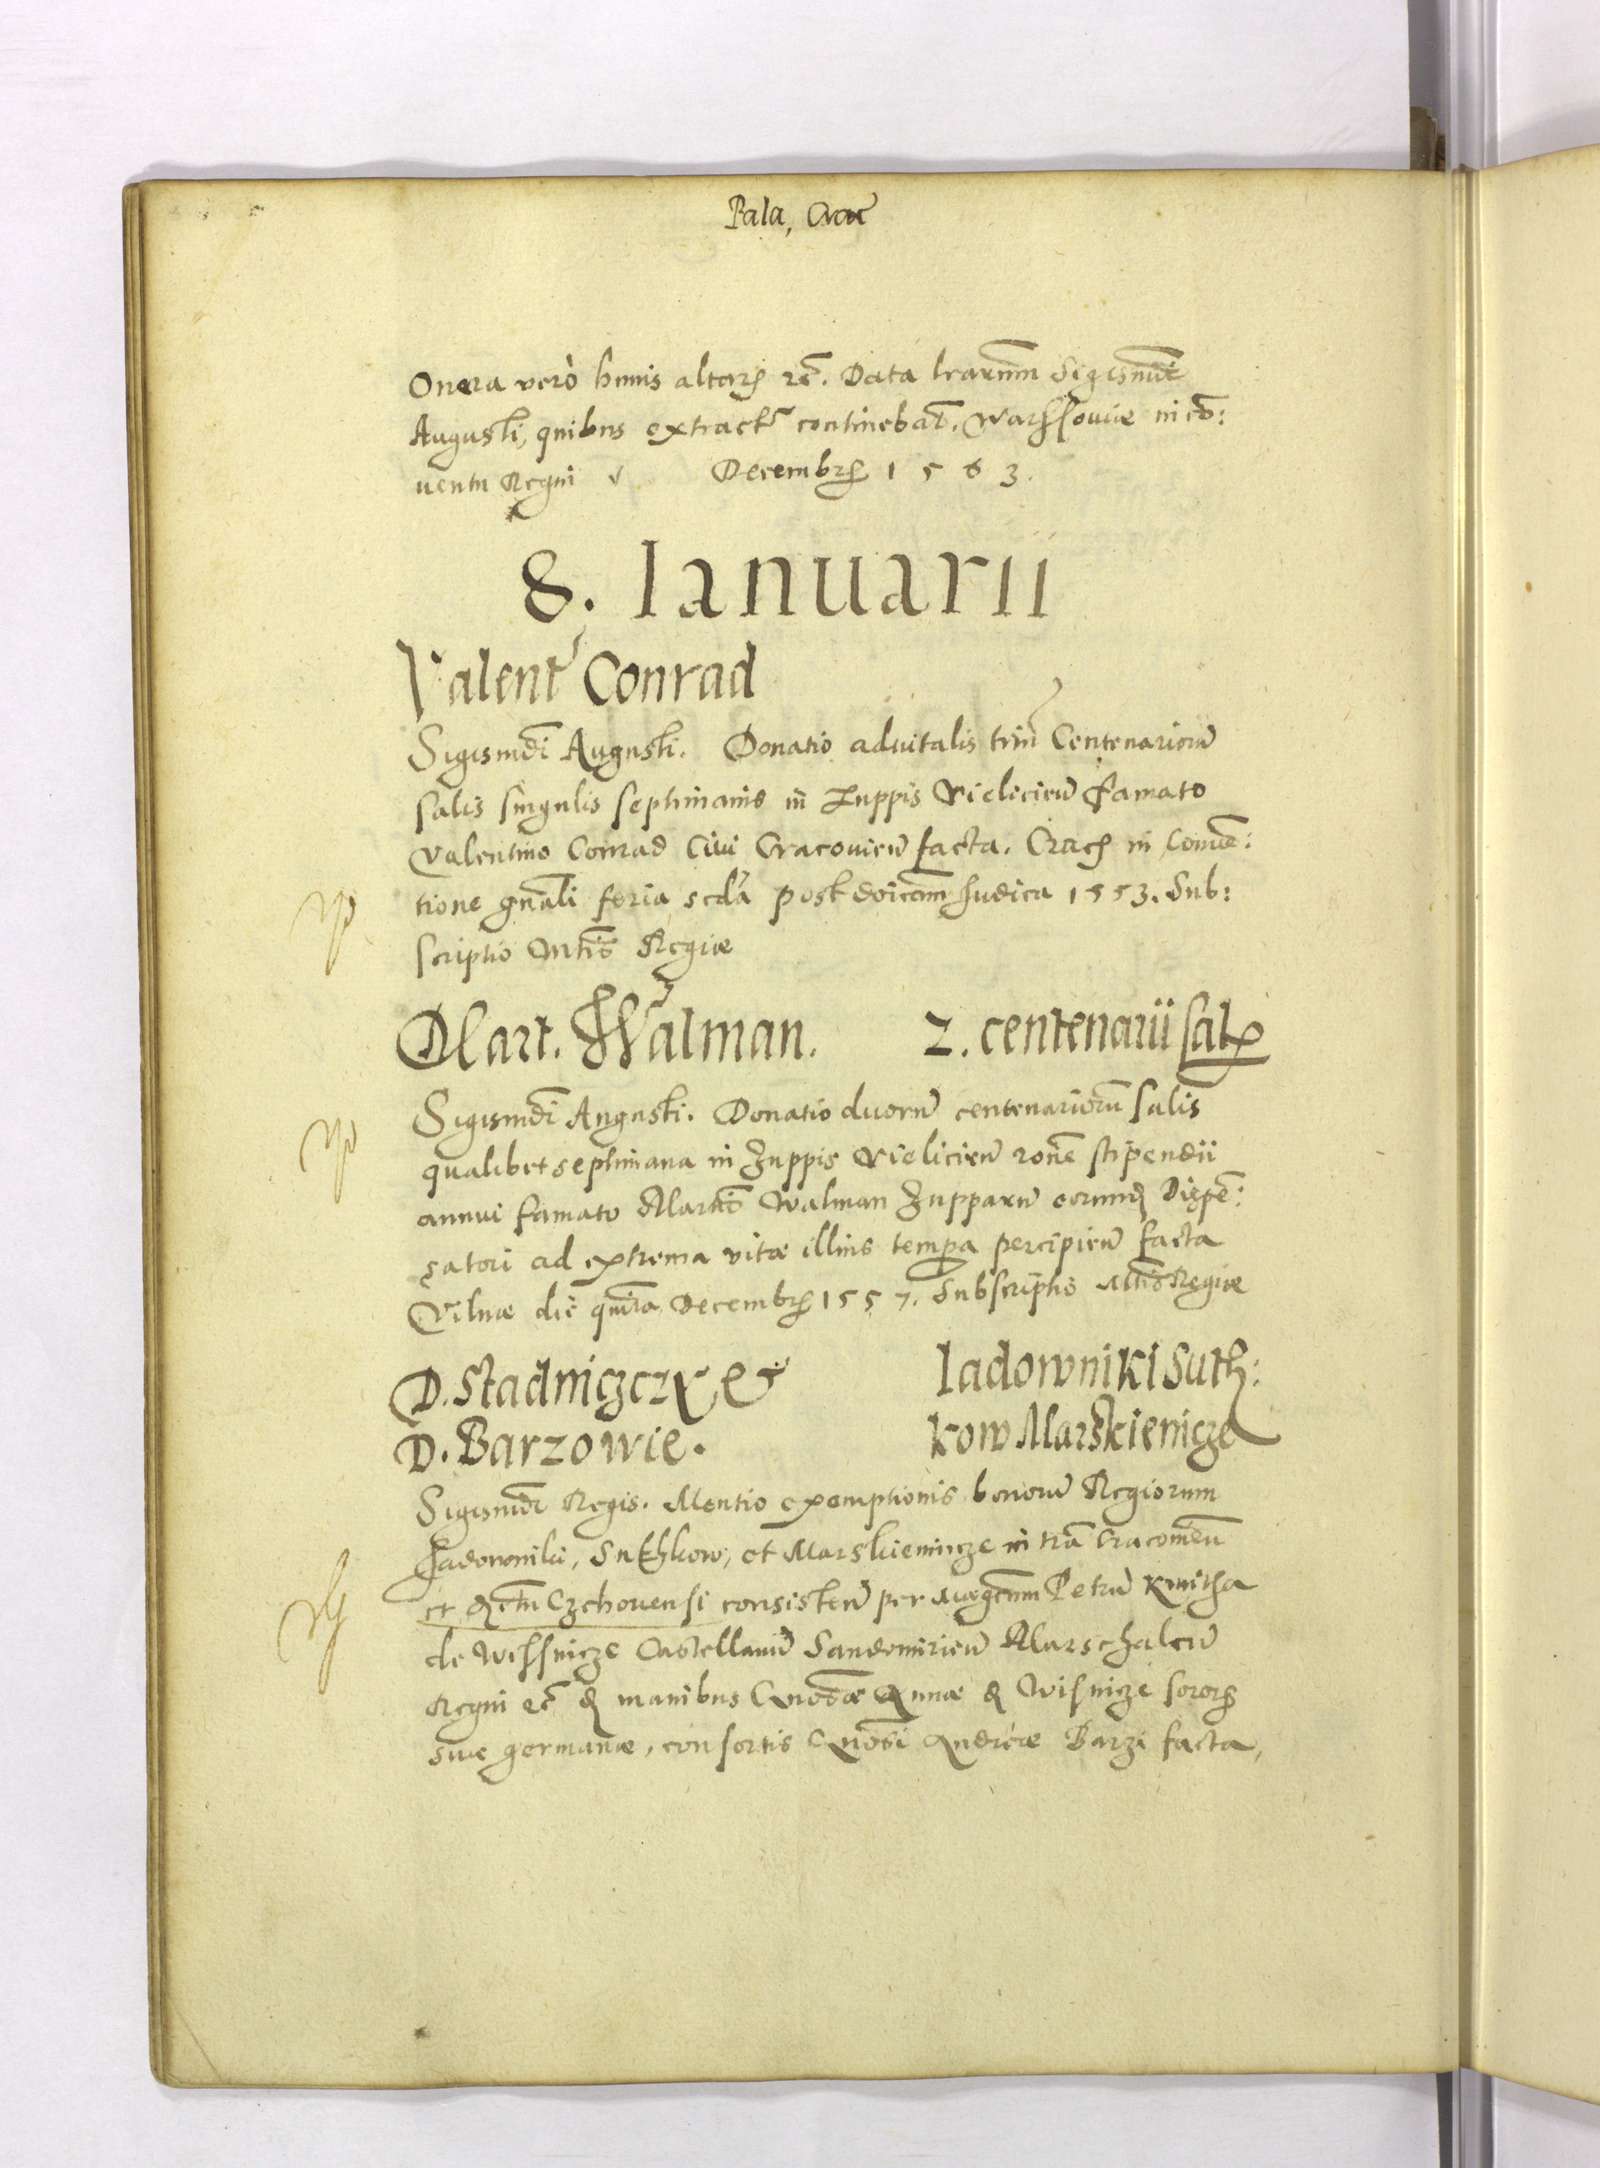 Pala, Crac̃
Onera verò huius altaris etc̃. Data lrarum̃ Sigismũdi
Augusti, quibus extractũ continebat̃. Warssouiæ in cõ:
uentu Regni v Decembris 1563.
8. Ianuarii
Valent̃ Conrad
Sigismũdi Augusti. Donatio aduitalis triũ Centenariorũ
salis singulis septimanis in Zuppis Vieliciẽn famato
Valentino Conrad Ciui Cracouieñ facta. Crac̃ in Conuẽ:
tione gñali feria scdã post doĩcam Judica 1553. Sub:
scriptio Mtĩs Regiæ
Mart. Walman. 2. centenarii salis
Sigismũdi Augusti. Donatio duorũ centenariorũ salis
qualibet septimana in Zuppis Vielicieñ rõne stipendii
annui famato Martĩo Walman Zupparũ earund̃ Dispẽ:
satori ad extrema vitæ illius tempora percipieñ facta
Vilnæ die quĩta Decembris 1557. Subscriptio Mtĩs Regiæ
D. Stadniczczy et Iadowniki Suth:
D. Barzowie. kow Marskienicze
Sigismũdi Regis. Mentio exemptionis bonorũ Regiorum
Jadowniki, Suthkow, et Marskienicze in tr̃a Cracouieñ
et distr̃ Czchouensi consisteñ per Magcum̃ Petrũ Kmitha
de Wissnicze Castellanũ Sandomirieñ Marschalcũ
Regni etc̃ de manibus Gnosæ Annæ de Wisnicze sororis
suæ germanæ, consortis Gnosi Andreæ Barzi facta,